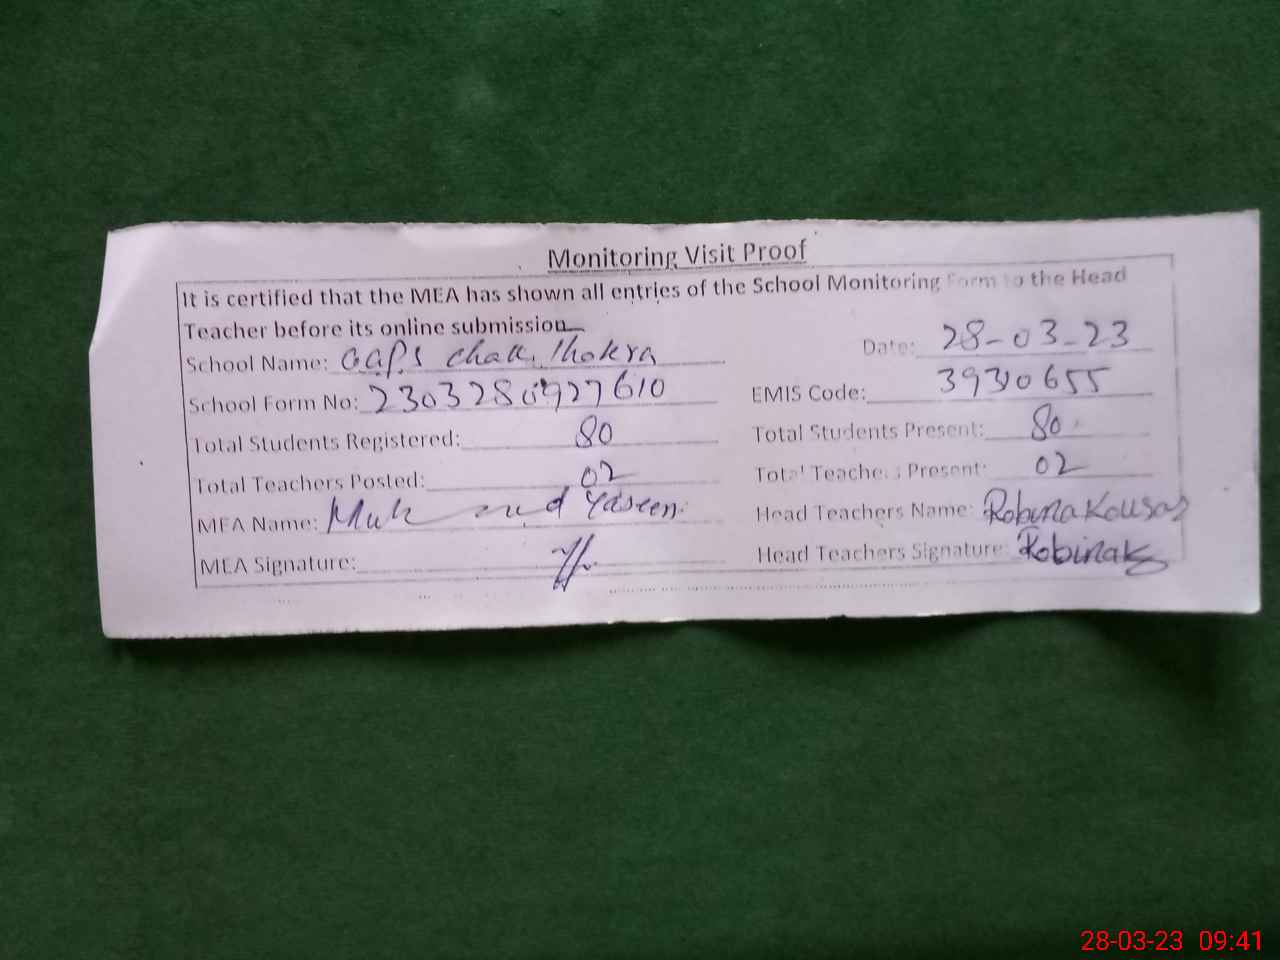 Monitoring Visit Proof
It is certified that the MEA has shown all entries of the School Monitoring Form to the Head
Teacher before its online submission
School Name: GGPS Chak Thokra Date: 28-03-23
School Form No: 2303280927610 EMIS Code: 39310655
Total Students Registered: 80 Total Students Present: 80
Total Teachers Posted: 02 Total Teachers Present: 02
MEA Name: Muhammad Yaseen Head Teachers Name: Robina Kousar
MEA Signature: Head Teachers Signature: RobinaK
28-03-23 09:41